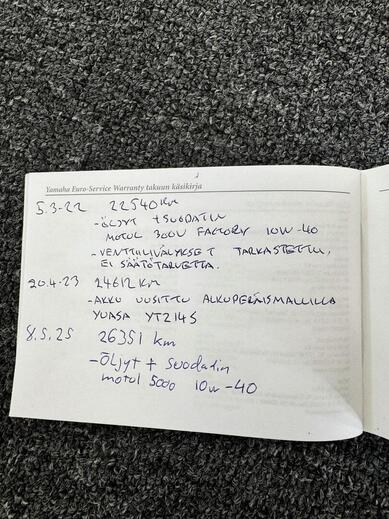 Yamaha Euro-Service Warranty takuun käsikirja
5.3-22 22540 km
-ÖLJYT + SUODATIN
MOTUL 300V FACTORY 10W-40
-VENTTIILIVÄLYKSET TARKASTETTU,
EI SÄÄTÖTARVETTA.
20.4-23 24612 km
-AKKU UUSITTU ALKUPERÄISMALLILLA
YUASA YTZ14S
8.5.25 26351 km
-Öljyt + Suodadin
motul 5000 10w-40